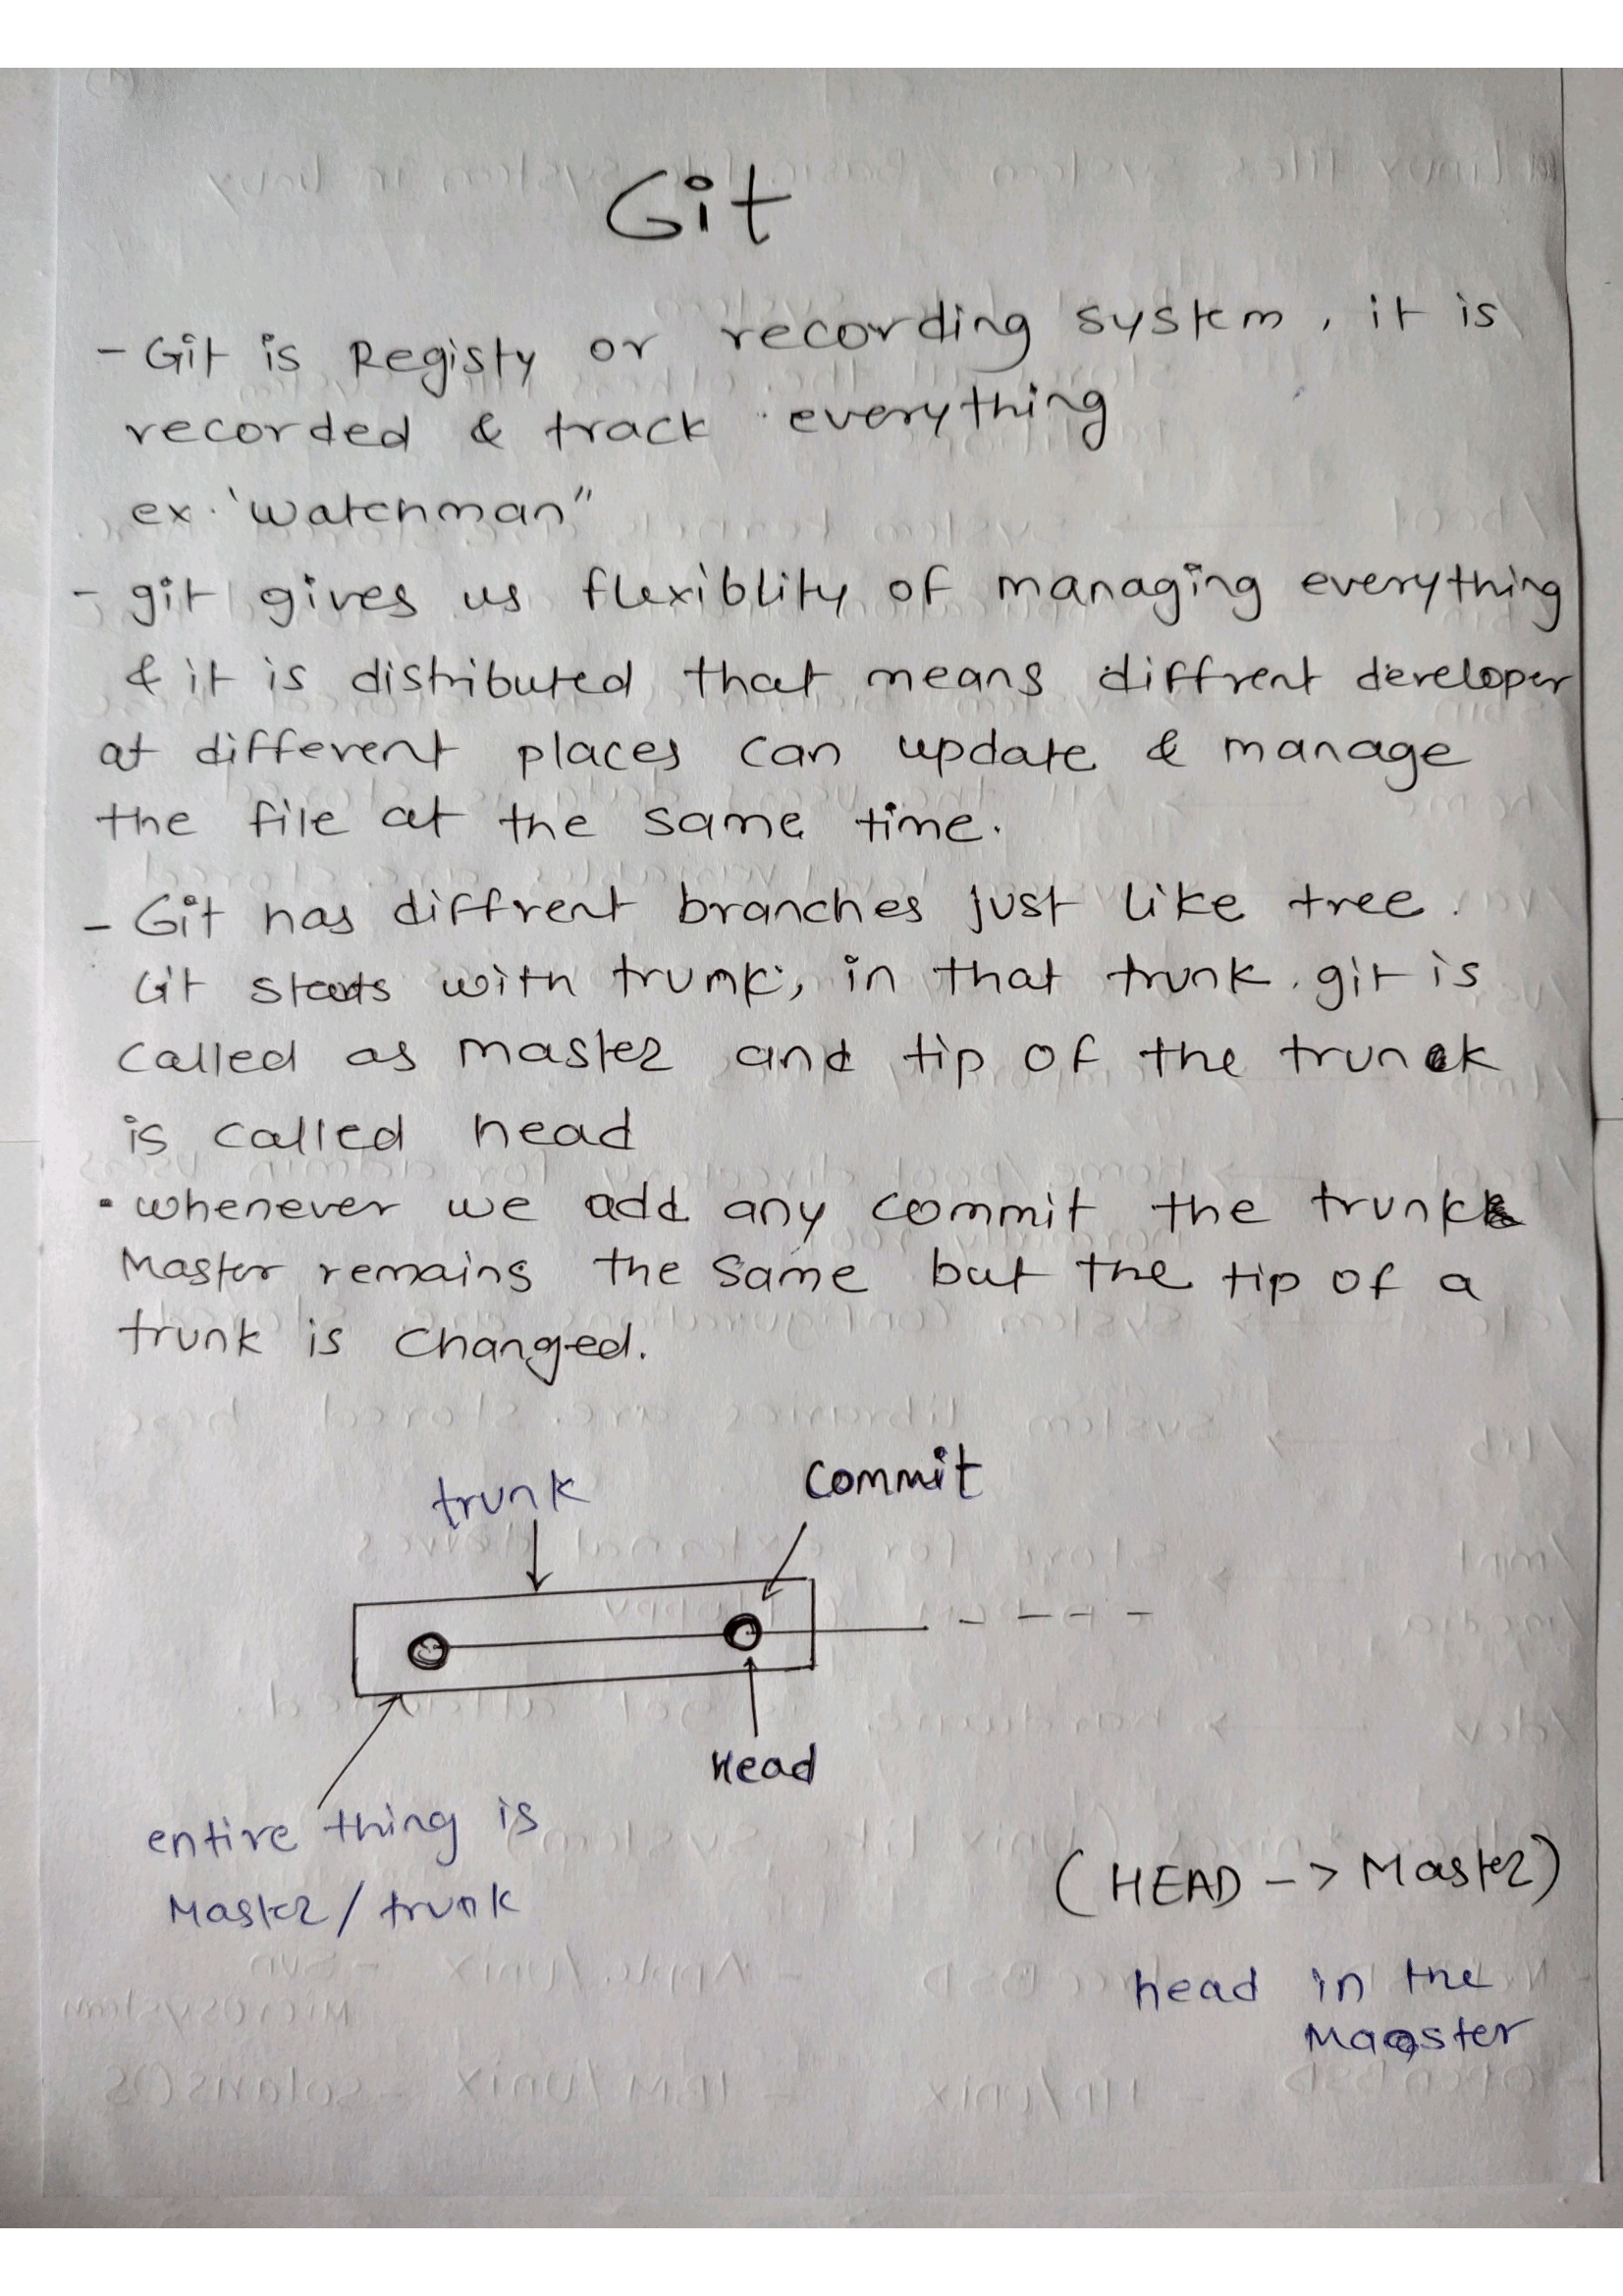 Git
- Git is Registy or recording system, it is
recorded & track everything
ex. 'watchman"
- git gives us flexiblity of managing everything
& it is distributed that means diffrent developer
at different places can update & manage
the file at the same time.
- Git has diffrent branches just like tree.
Git starts with trunk, in that trunk git is
called as master and tip of the trunck
is called head
• whenever we add any commit the trunk
Master remains the same but the tip of a
trunk is changed.
trunk
commit
Head
entire thing is
Master / trunk
(HEAD -> Master)
head in the
Maaster